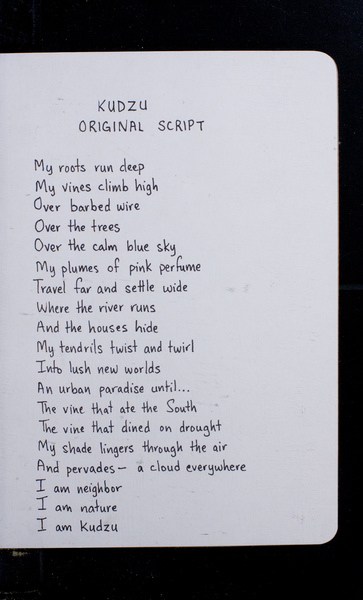 KUDZU
ORIGINAL SCRIPT
My roots run deep
My vines climb high
Over barbed wire
Over the trees
Over the calm blue sky
My plumes of pink perfume
Travel far and settle wide
Where the river runs
And the houses hide
My tendrils twist and twirl
Into lush new worlds
An urban paradise until...
The vine that ate the South
The vine that dined on drought
My shade lingers through the air
And pervades — a cloud everywhere
I am neighbor
I am nature
I am Kudzu